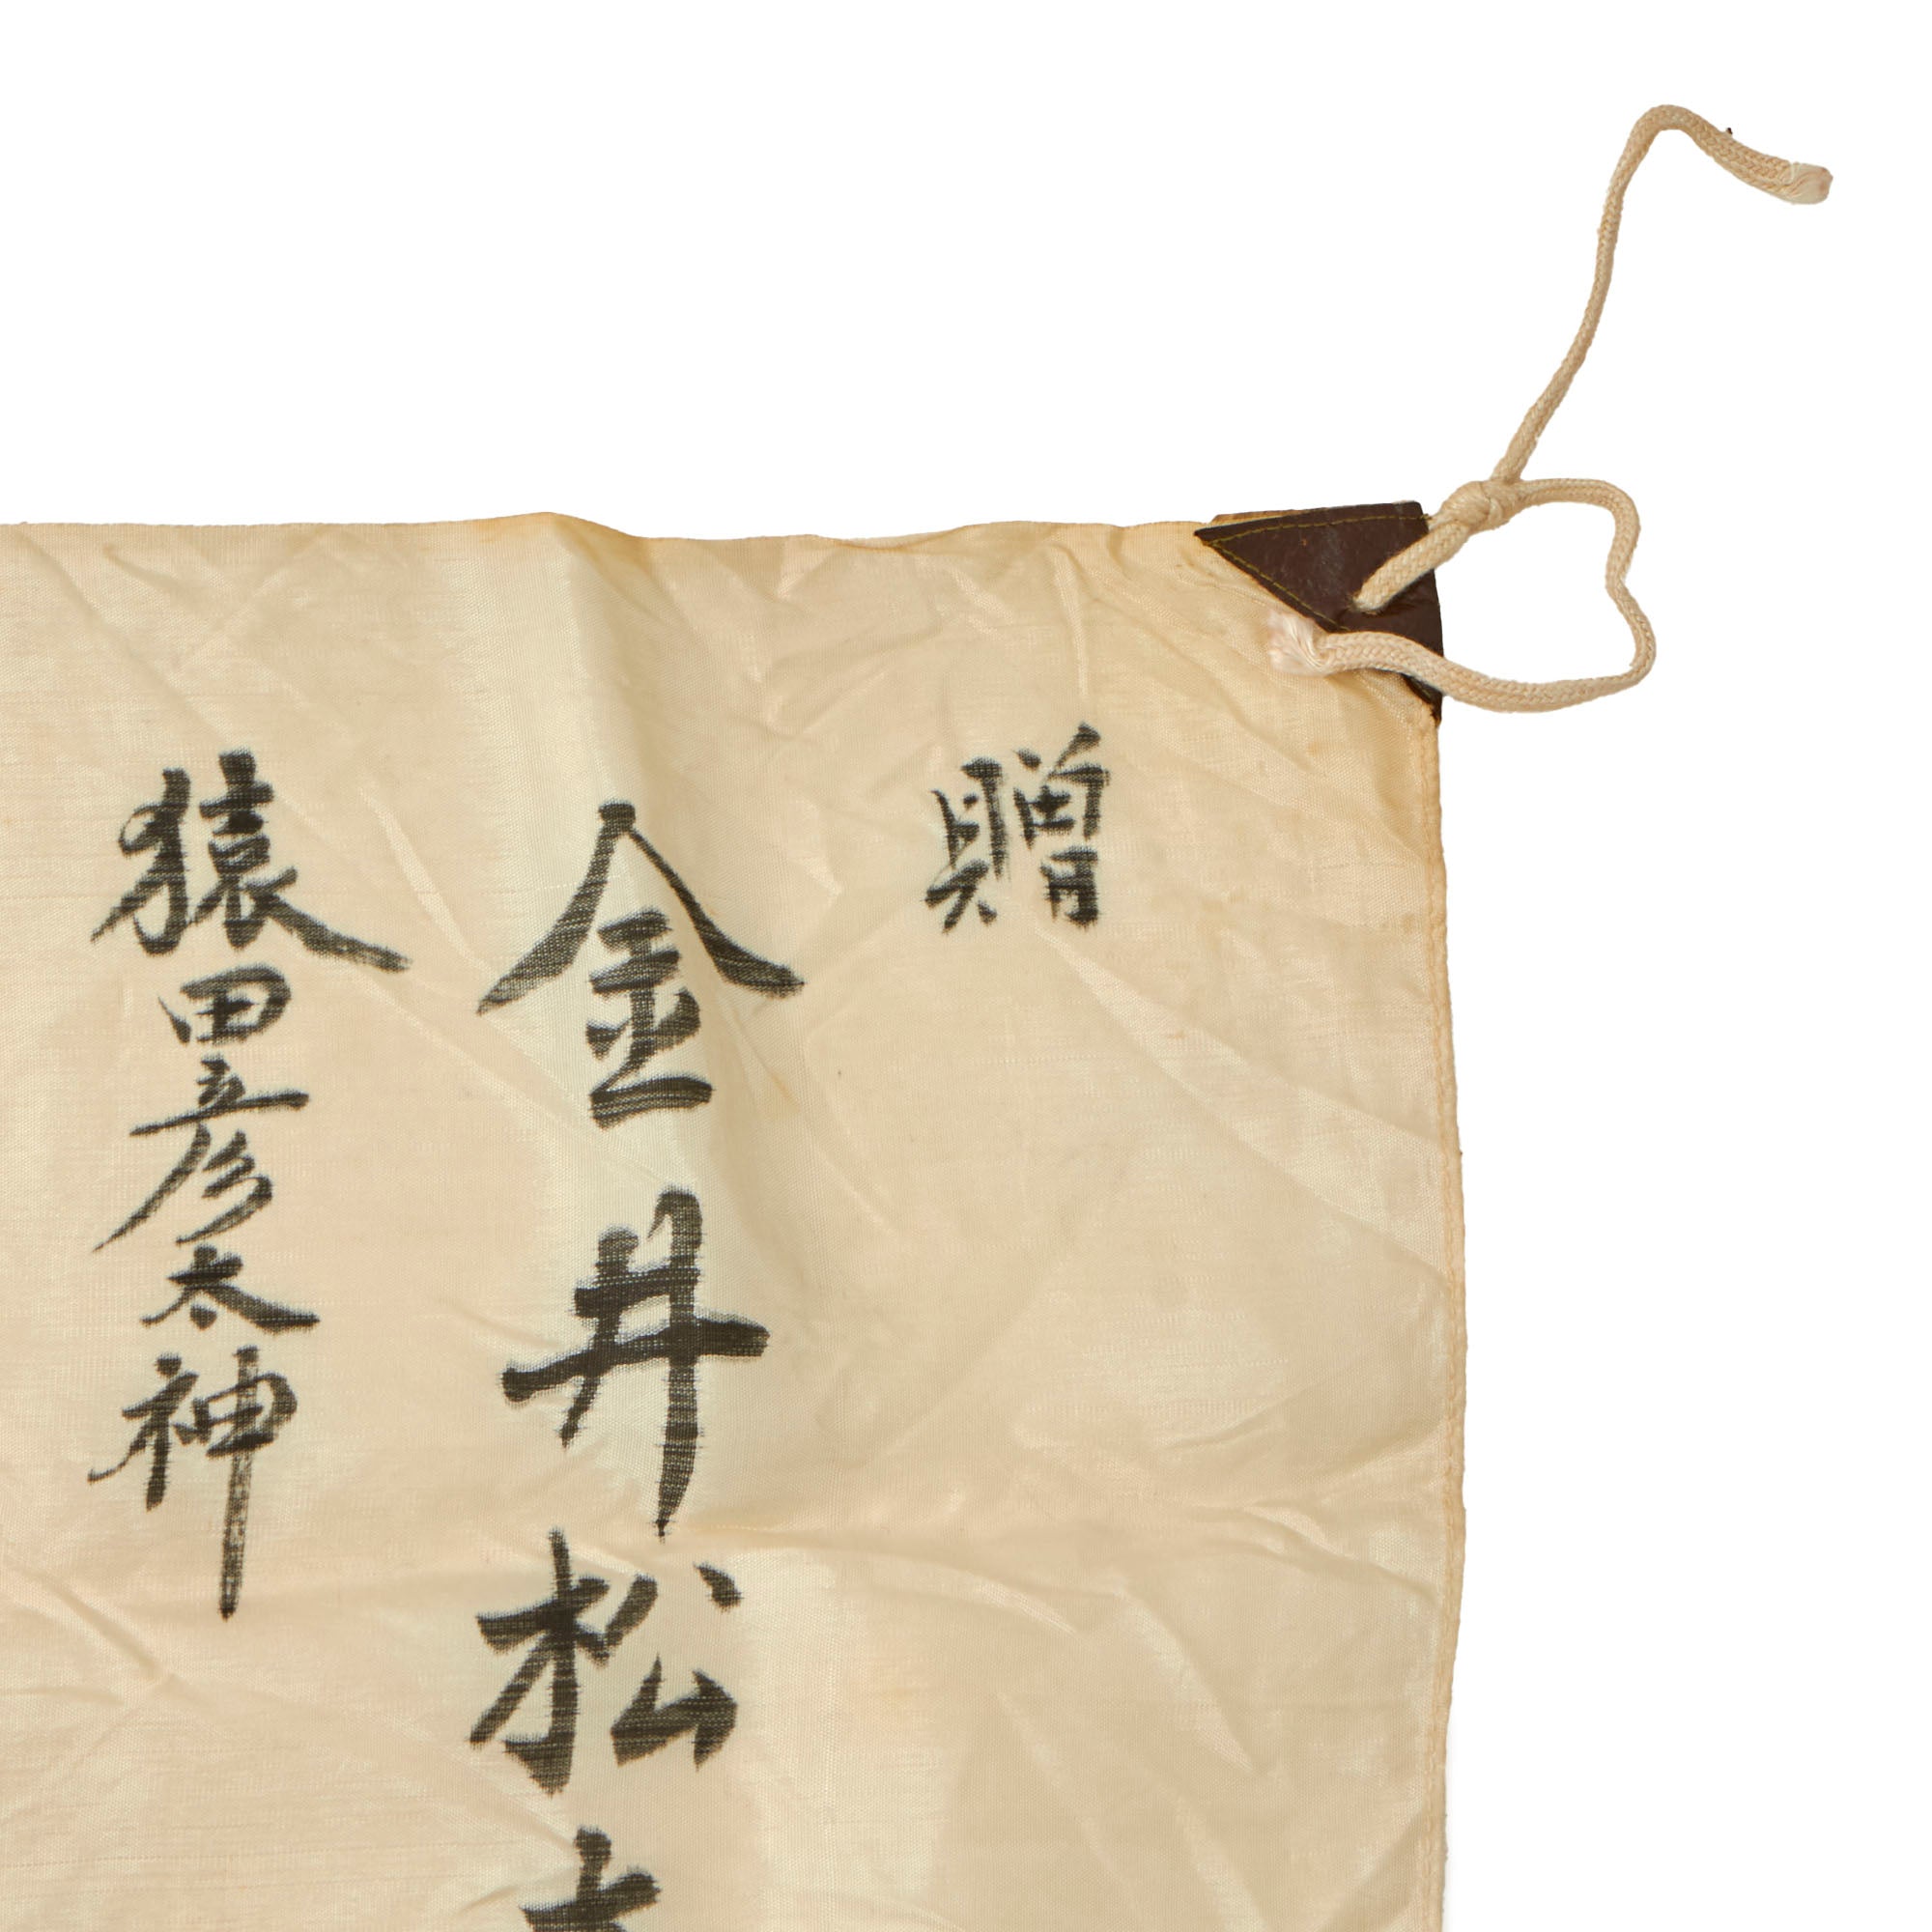 贈
金井松
猿田彦太神